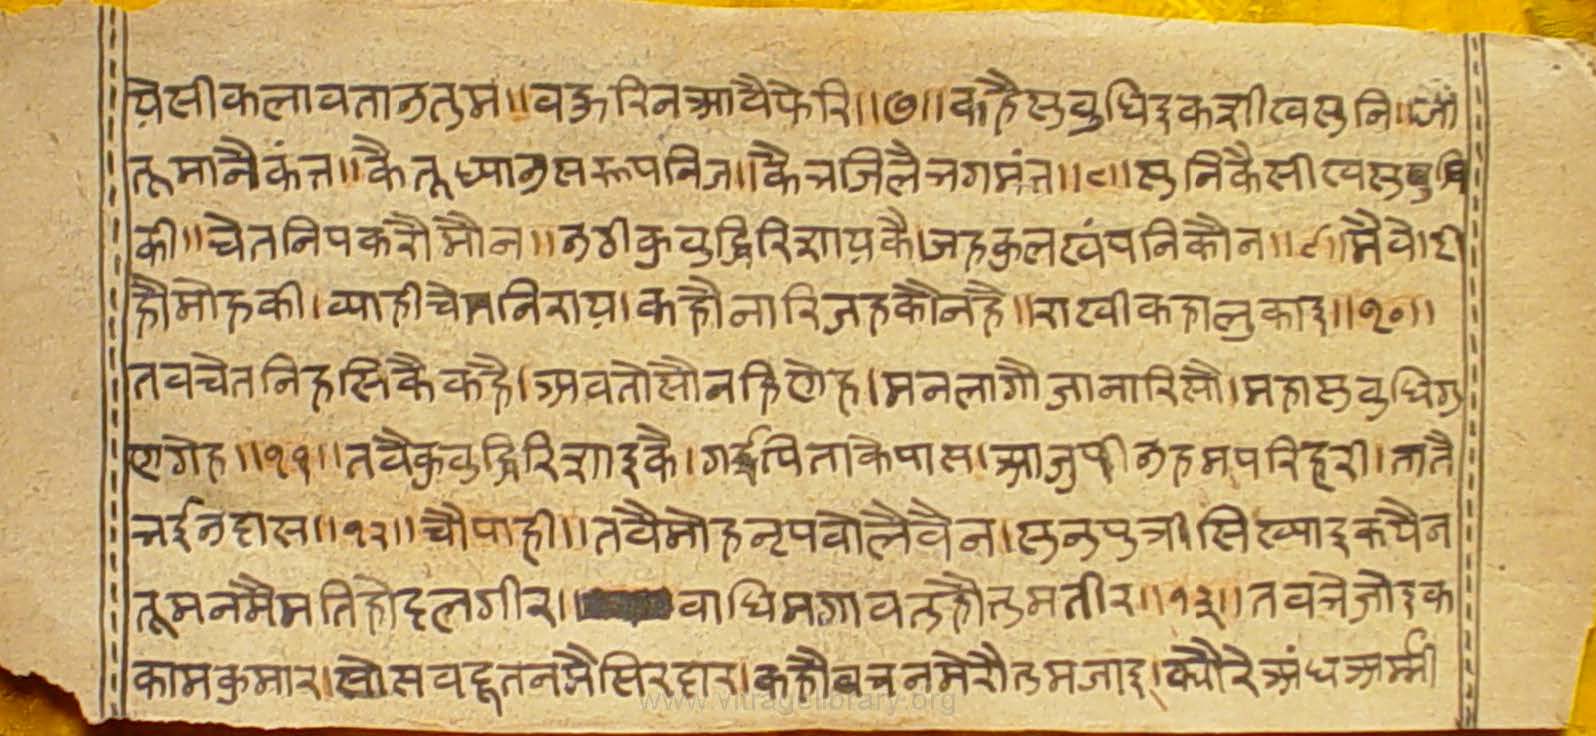 येसीकलावतानुतुम॥वऊरिनआवैफेरि॥७॥कहैसुवुधिइकशीखसुनि॥जो
तूमानैकंत॥कैतूध्यानुसरूपनिज॥कैत्रजिलैत्रगमंत॥८॥सुनिकैसीखसुवुधि
की॥चेतनिपकरीमौन॥नठीकुवुद्धिरिशायकै।जहकुलखंपनिकौन॥९॥मैवेटी
हौमोहकी।व्याहीचेतनिराय।कहौनारिजहकौनहै॥राखीकहालुकाइ॥१०॥
तवचेतनिहसिकैकहै।अवतोसौनहिणेह।मनलागौजानारिसौ।महासुवुधिगु
णगेह॥११॥तवैकुवुद्धिरिशाइकै।गईपिताकेपास।आजुपीनहमपरिहरी।तातै
त्रईनदास॥१२॥चौपाही॥तवैमोहनृपवोलैवैन।सुनुपुत्रीसिख्याइकपैन
तूमनमैमतिहोइलगीर॥वाधिमगावतुहौतुमतीर॥१३॥तवत्रेजोइक
कामकुमार।सोसवदूतनमैसिरदार।कहौवचनमेरौतुमजाइ।क्यौरेअंधअर्म्मी
www.vitragelibrary.org